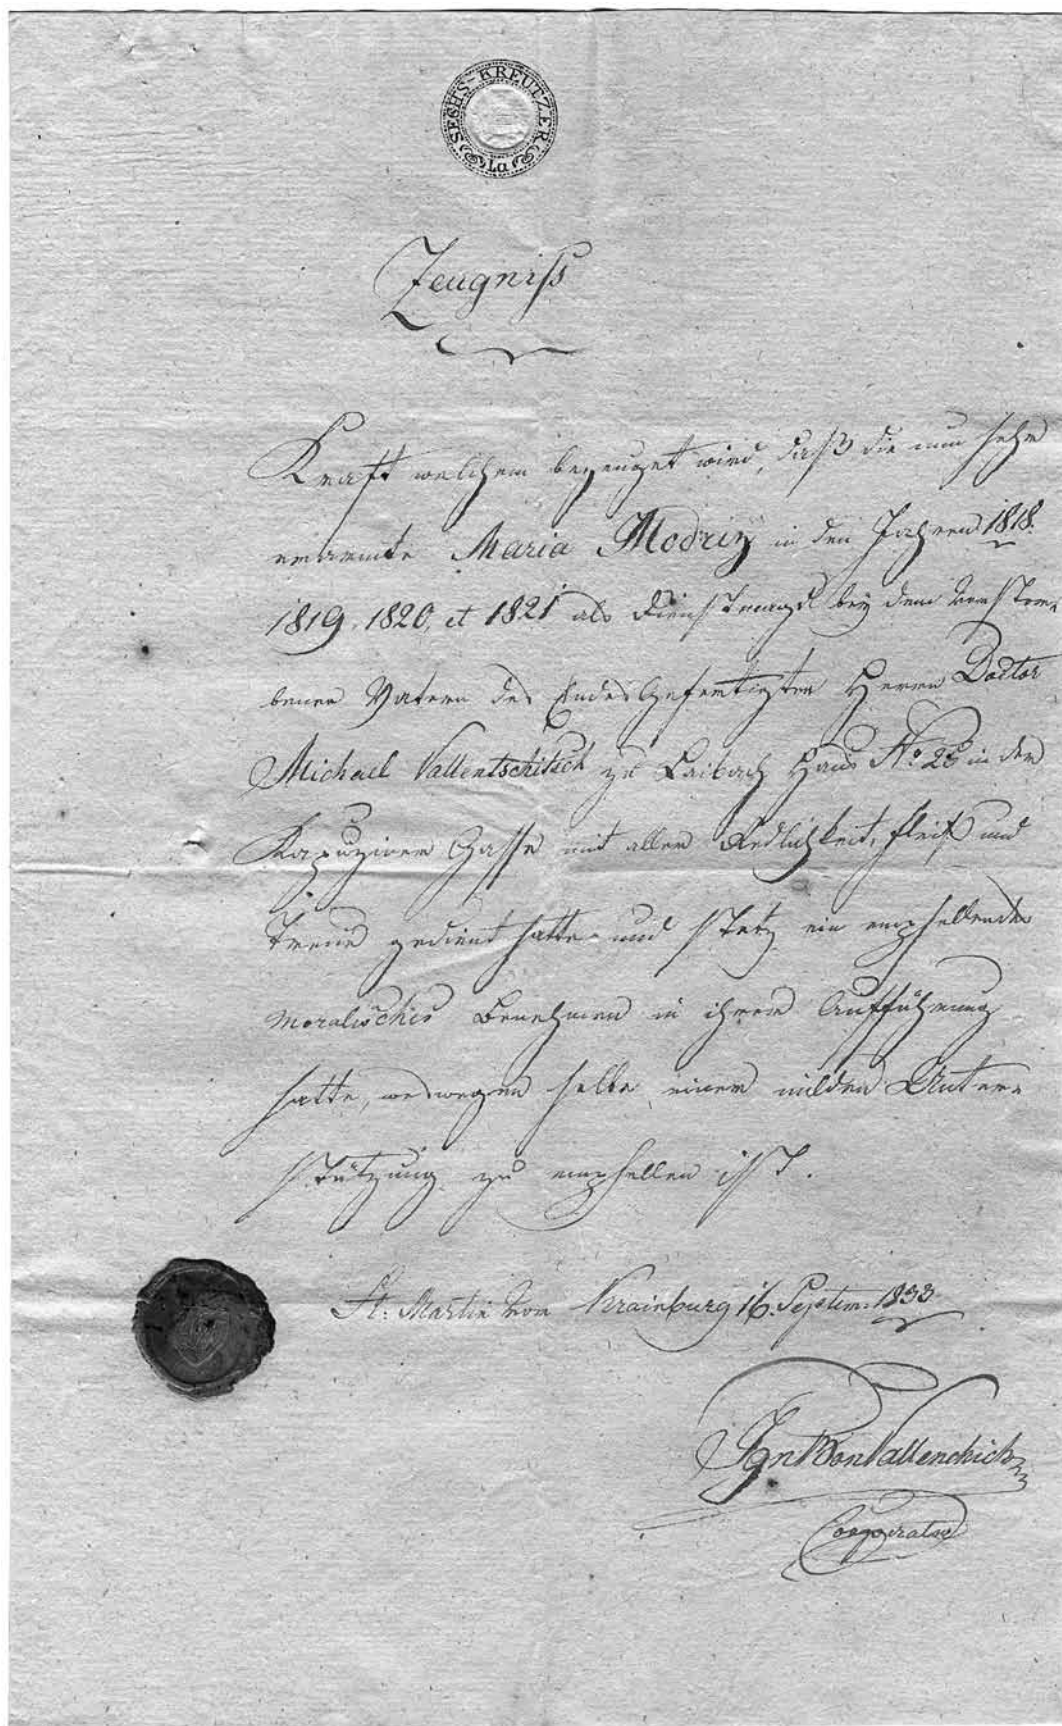 SECHS-KREUTZER
La
Zeugniss
Kraft welchem bezeuget wird, daß die nun sehr
verarmte Maria Modriz in den Jahren 1818.
1819. 1820, et 1821 als Dienstmagd bey dem verstor-
benen Vatern des Endes Gefertigten Herrn Doctor
Michael Vallentschitsch zu Laibach Haus No 26 in der
Kapuziner Gasse mit aller Redlichkeit, Fleiß und
Treue gedient hatte und stetz ein empfellendes
moralisches Benehmen in ihrer Aufführung
hatte, weswegen selbe einer milden Unter-
stützung zu empfellen ist.
St. Martin vor Krainburg 16. Septem. 1833
Ign Von Vallenchich
Cooperator